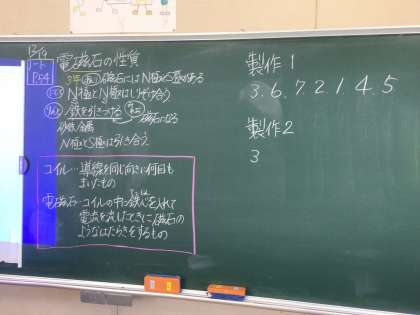 12/19
ノート
P.54
電磁石の性質
5年 磁石にはN極とS極がある
N極とN極はしりぞけ合う
鉄を引きつける 磁石になる
金属
N極とS極は引き合う
コイル…導線を同じ向きに何回も
まいたもの
電磁石…コイルの中に鉄しんを入れて
電流を流したときに、磁石の
ようなはたらきをするもの
製作1
3.6.7.2.1.4.5
製作2
3